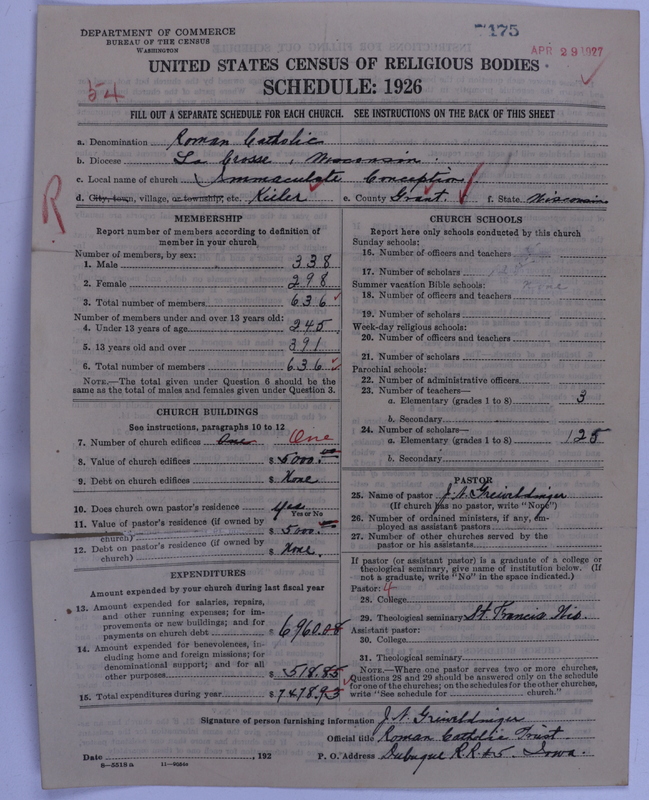 7175
APR 29 1927
DEPARTMENT OF COMMERCE
BUREAU OF THE CENSUS
WASHINGTON
UNITED STATES CENSUS OF RELIGIOUS BODIES
SCHEDULE: 1926
54
FILL OUT A SEPARATE SCHEDULE FOR EACH CHURCH. SEE INSTRUCTIONS ON THE BACK OF THIS SHEET
a. Denomination Roman Catholic
b. Diocese La Crosse, Wisconsin.
c. Local name of church Immaculate Conception
d. City, town, village, or township, etc. Kieler e. County Grant. f. State. Wisconsin
R
MEMBERSHIP
Report number of members according to definition of
member in your church
Number of members, by sex:
1. Male 338
2. Female 298
3. Total number of members 636
Number of members under and over 13 years old:
4. Under 13 years of age 245
5. 13 years old and over 391
6. Total number of members 636
NOTE.—The total given under Question 6 should be the
same as the total of males and females given under Question 3.
CHURCH BUILDINGS
See instructions, paragraphs 10 to 12
7. Number of church edifices One One
8. Value of church edifices $ 5000.00
9. Debt on church edifices $ None
10. Does church own pastor's residence yes
Yes or No
11. Value of pastor's residence (if owned by
church) $ 5000.00
12. Debt on pastor's residence (if owned by
church) $ None.
EXPENDITURES
Amount expended by your church during last fiscal year
13. Amount expended for salaries, repairs,
and other running expenses; for im-
provements or new buildings; and for
payments on church debt $ 6960.08
14. Amount expended for benevolences, in-
cluding home and foreign missions; for
denominational support; and for all
other purposes $ 518.85
15. Total expenditures during year $ 7478.93
CHURCH SCHOOLS
Report here only schools conducted by this church
Sunday schools:
16. Number of officers and teachers
17. Number of scholars
Summer vacation Bible schools:
18. Number of officers and teachers
19. Number of scholars
Week-day religious schools:
20. Number of officers and teachers
21. Number of scholars
Parochial schools:
22. Number of administrative officers
23. Number of teachers—
a. Elementary (grades 1 to 8) 3
b. Secondary
24. Number of scholars—
a. Elementary (grades 1 to 8) 125
b. Secondary
PASTOR
25. Name of pastor J. N.
(If church has no pastor, write "None")
26. Number of ordained ministers, if any, em-
ployed as assistant pastors
27. Number of other churches served by the
pastor or his assistants
If pastor (or assistant pastor) is a graduate of a college or
theological seminary, give name of institution below. (If
not a graduate, write "No" in the space indicated.)
Pastor: 4
28. College
29. Theological seminary St. Francis Wis.
Assistant pastor:
30. College
31. Theological seminary
NOTE.—Where one pastor serves two or more churches,
Questions 28 and 29 should be answered only on the schedule
for one of the churches; on the schedules for the other churches,
write "See schedule for church."
Signature of person furnishing information J. N.
Official title Roman Catholic Priest
Date , 192 P. O. Address Dubuque R.R. #5. Iowa.
8-5518a 11-9064a